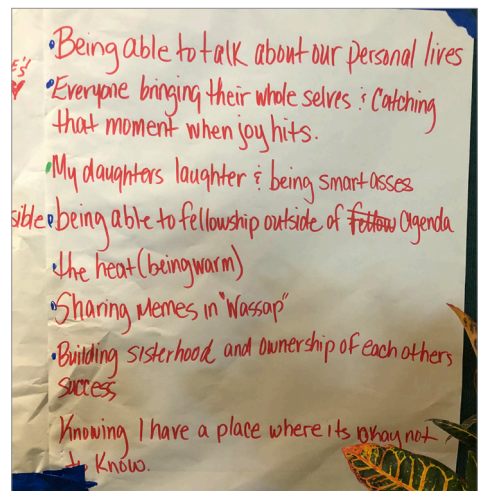 •Being able to talk about our personal lives
•Everyone bringing their whole selves & Catching
that moment when joy hits.
•My daughters laughter & being smartasses
sible •being able to fellowship outside of ~~fellow~~ agenda
•the heat (being warm)
•Sharing Memes in "Wassap"
•Building sisterhood and ownership of each others
success
Knowing I have a place where its okay not
to Know.